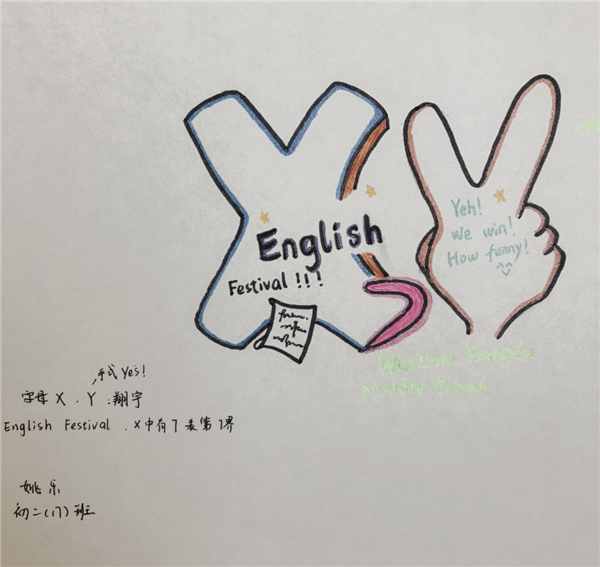 English
Festival !!!
Yeh!
We win!
How funny!
Middle School
手式 Yes!
字母 X 、Y :翔宇
English Festival . X中有7表第7界
姚乐
初二(17)班